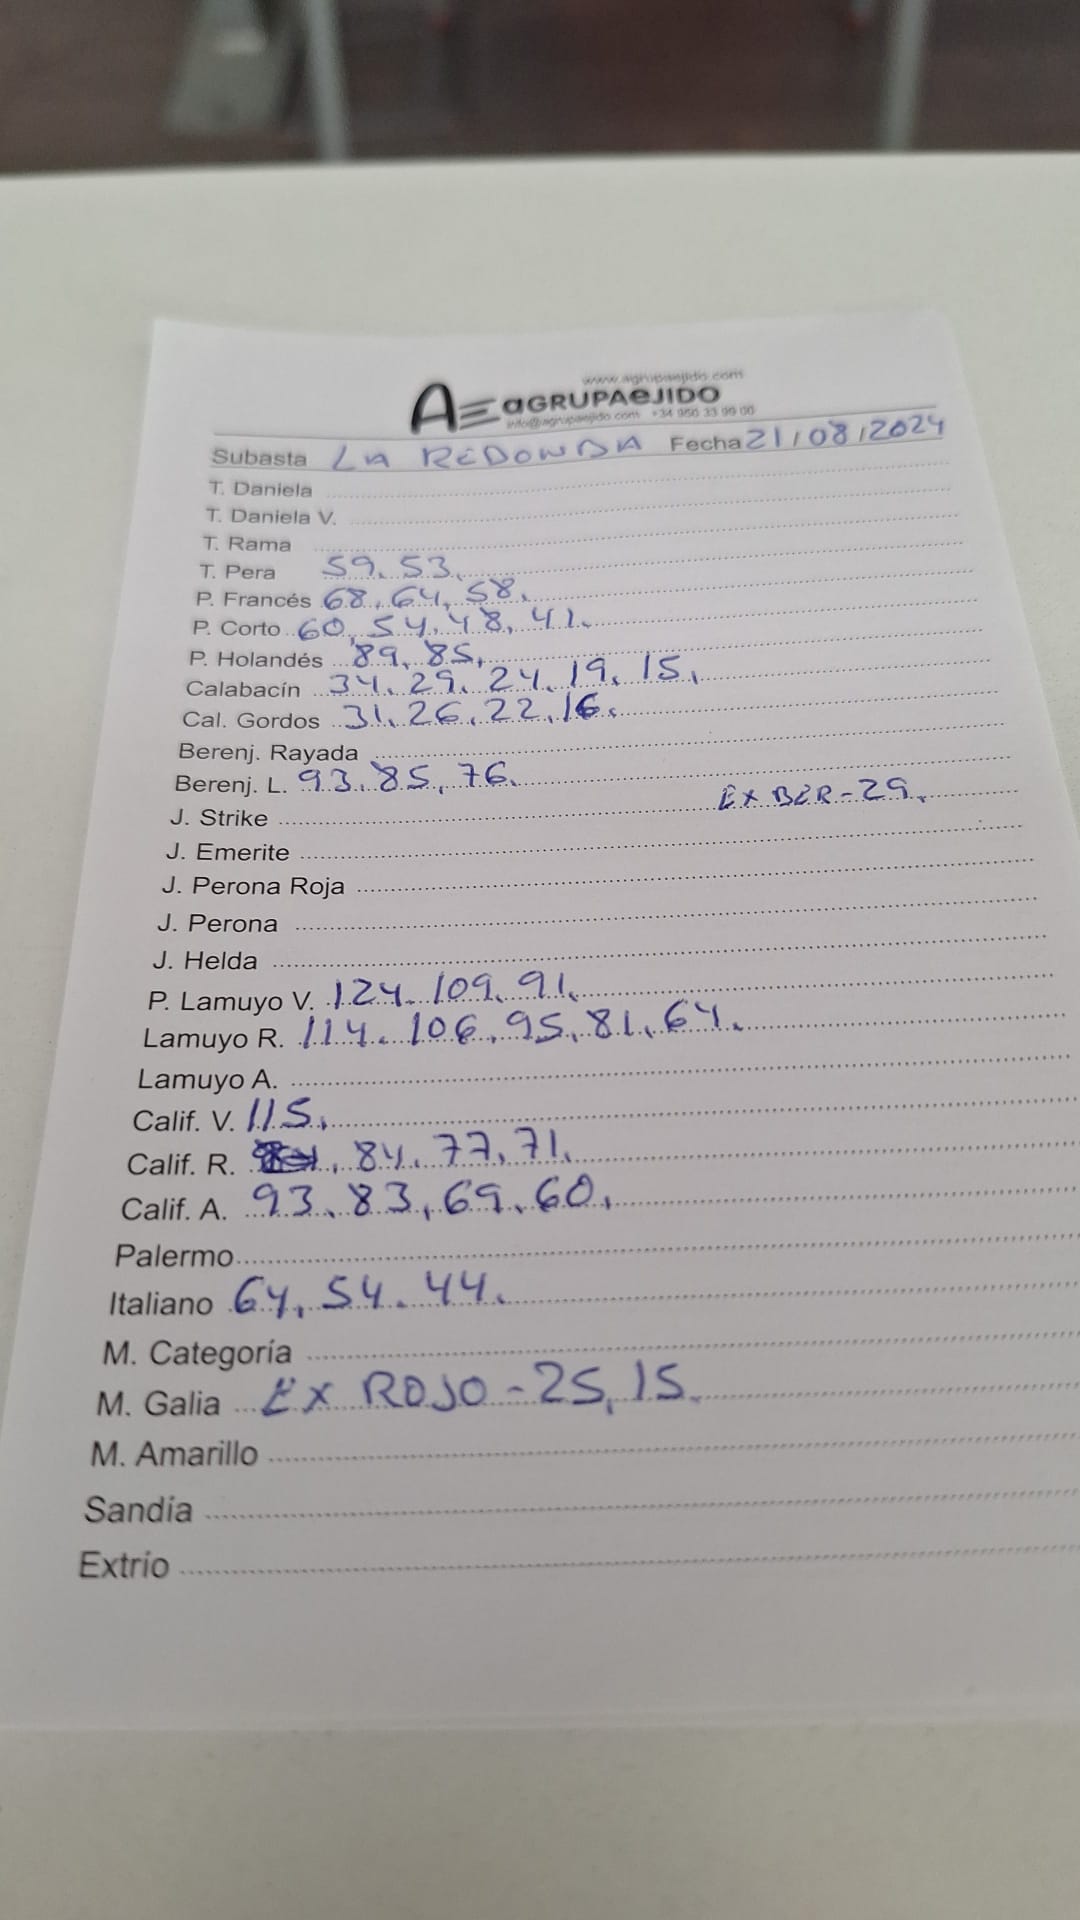 www.agrupaejido.com
AGRUPAEJIDO
info@agrupaejido.com +34 950 33 99 00
Subasta LA REDONDA Fecha 21/08/2024
T. Daniela
T. Daniela V.
T. Rama
T. Pera 59, 53,
P. Francés 68, 64, 58,
P. Corto 60, 54, 48, 41,
P. Holandés 89, 85,
Calabacín 34, 29, 24, 19, 15,
Cal. Gordos 31, 26, 22, 16,
Berenj. Rayada
Berenj. L. 93, 85, 76,
EX BER-29,
J. Strike
J. Emerite
J. Perona Roja
J. Perona
J. Helda
P. Lamuyo V. 124, 109, 91,
Lamuyo R. 114, 106, 95, 81, 64,
Lamuyo A.
Calif. V. 115,
Calif. R. , 84, 77, 71,
Calif. A. 93, 83, 69, 60,
Palermo
Italiano 64, 54, 44,
M. Categoría
M. Galia EX ROJO-25, 15,
M. Amarillo
Sandía
Extrio